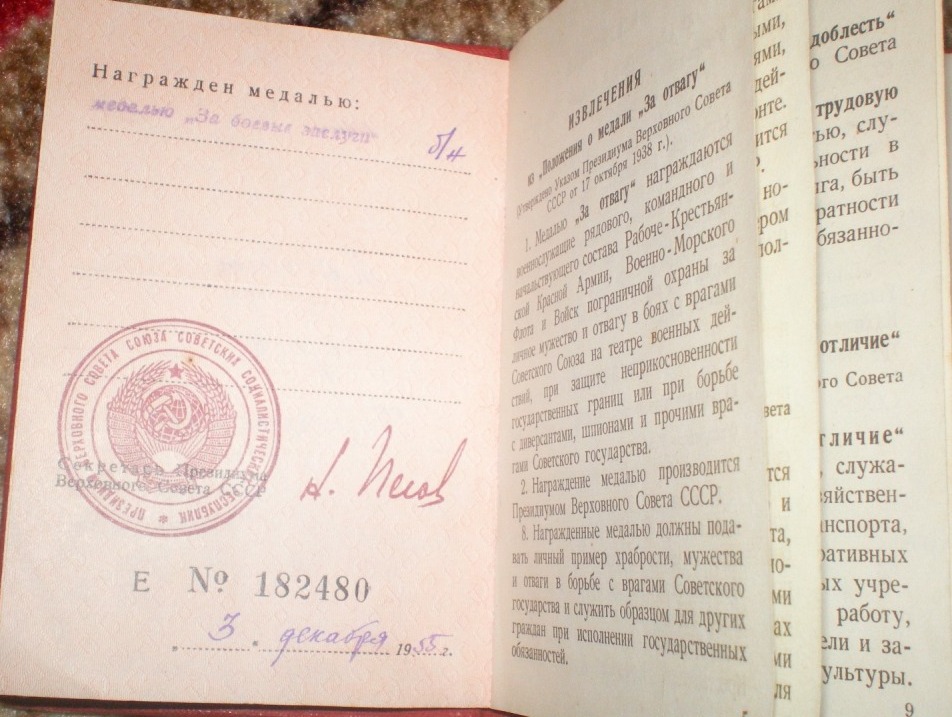 Награжден медалью:
медалью „За боевые заслуги“ б/н
ПРЕЗИДИУМ ВЕРХОВНОГО СОВЕТА СОЮЗА СОВЕТСКИХ СОЦИАЛИСТИЧЕСКИХ РЕСПУБЛИК
Секретарь Президиума
Верховного Совета СССР
Н. Пегов
Е № 182480
„ 3 “ декабря 1955 г.
ИЗВЛЕЧЕНИЯ
из „Положения о медали „За отвагу“
(Утверждено Указом Президиума Верховного Совета
СССР от 17 октября 1938 г.).
1. Медалью „За отвагу“ награждаются
военнослужащие рядового, командного и
начальствующего состава Рабоче-Крестьян-
ской Красной Армии, Военно-Морского
Флота и Войск пограничной охраны за
личное мужество и отвагу в боях с врагами
Советского Союза на театре военных дей-
ствий, при защите неприкосновенности
государственных границ или при борьбе
с диверсантами, шпионами и прочими вра-
гами Советского государства.
2. Награждение медалью производится
Президиумом Верховного Совета СССР.
8. Награжденные медалью должны пода-
вать личный пример храбрости, мужества
и отваги в борьбе с врагами Советского
государства и служить образцом для других
граждан при исполнении государственных
обязанностей.
доблесть“
Совета
трудовую
слу-
в
быть
отличие“
Совета
служа-
работу,
и за-
9